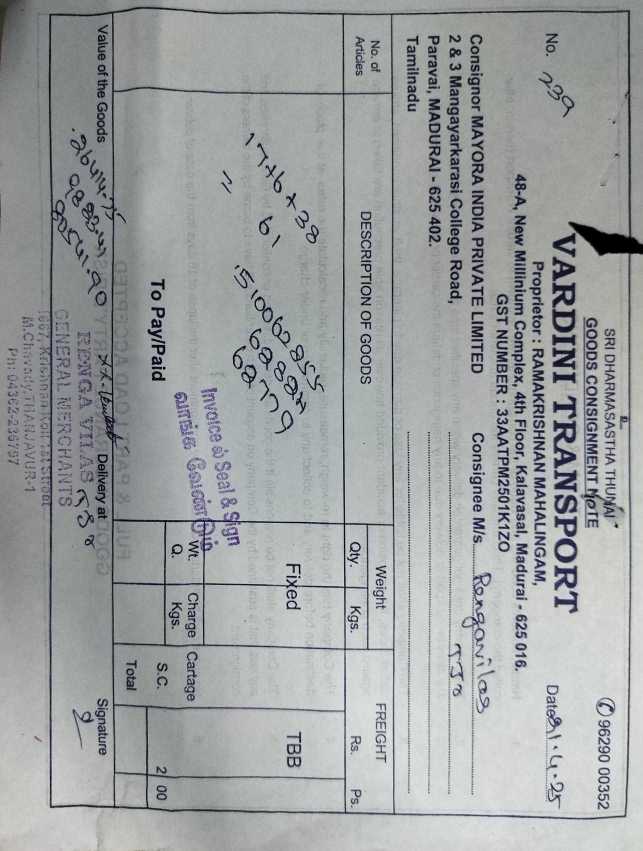 SRI DHARMASASTHA THUNAI
GOODS CONSIGNMENT NOTE
✆ 96290 00352
VARDINI TRANSPORT
Proprietor : RAMAKRISHNAN MAHALINGAM,
48-A, New Millinium Complex, 4th Floor, Kalavasal, Madurai - 625 016.
GST NUMBER : 33AATPM2501K1ZO
No. 239
Date 21.4.25
Consignor MAYORA INDIA PRIVATE LIMITED
2 & 3 Mangayarkarasi College Road,
Paravai, MADURAI - 625 402.
Tamilnadu
Consignee M/s. Rengavilas
TJ8
No. of Articles
DESCRIPTION OF GOODS
Weight
Qty. Kgs.
FREIGHT
Rs. Ps.
17+6+38
= 61
510062855
68779
Fixed
TBB
Invoice ல் Seal & Sign
வாங்க வேண்டும்
To Pay/Paid
Wt. Q.
Charge Kgs.
Cartage
S.C. 2 00
Total
Value of the Goods
Delivery at
Signature
RENGA VILAS
GENERAL MERCHANTS
M.Chavady, THANJAVUR-1
Ph: 04362-236797